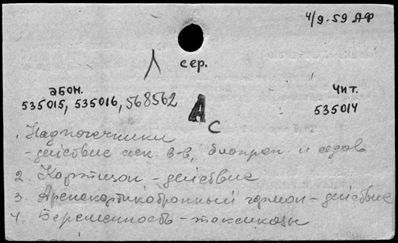 4/9-59 АФ
Л сер.
абон. чит.
535015, 535016, 568562 535014
А
С
1. Надпочечники
- действие лек. в-в, биопреп. и ядов
2. Кортизон - действие
3. Аренокортикотропный гормон - действие
4. Беременность - токсикозы